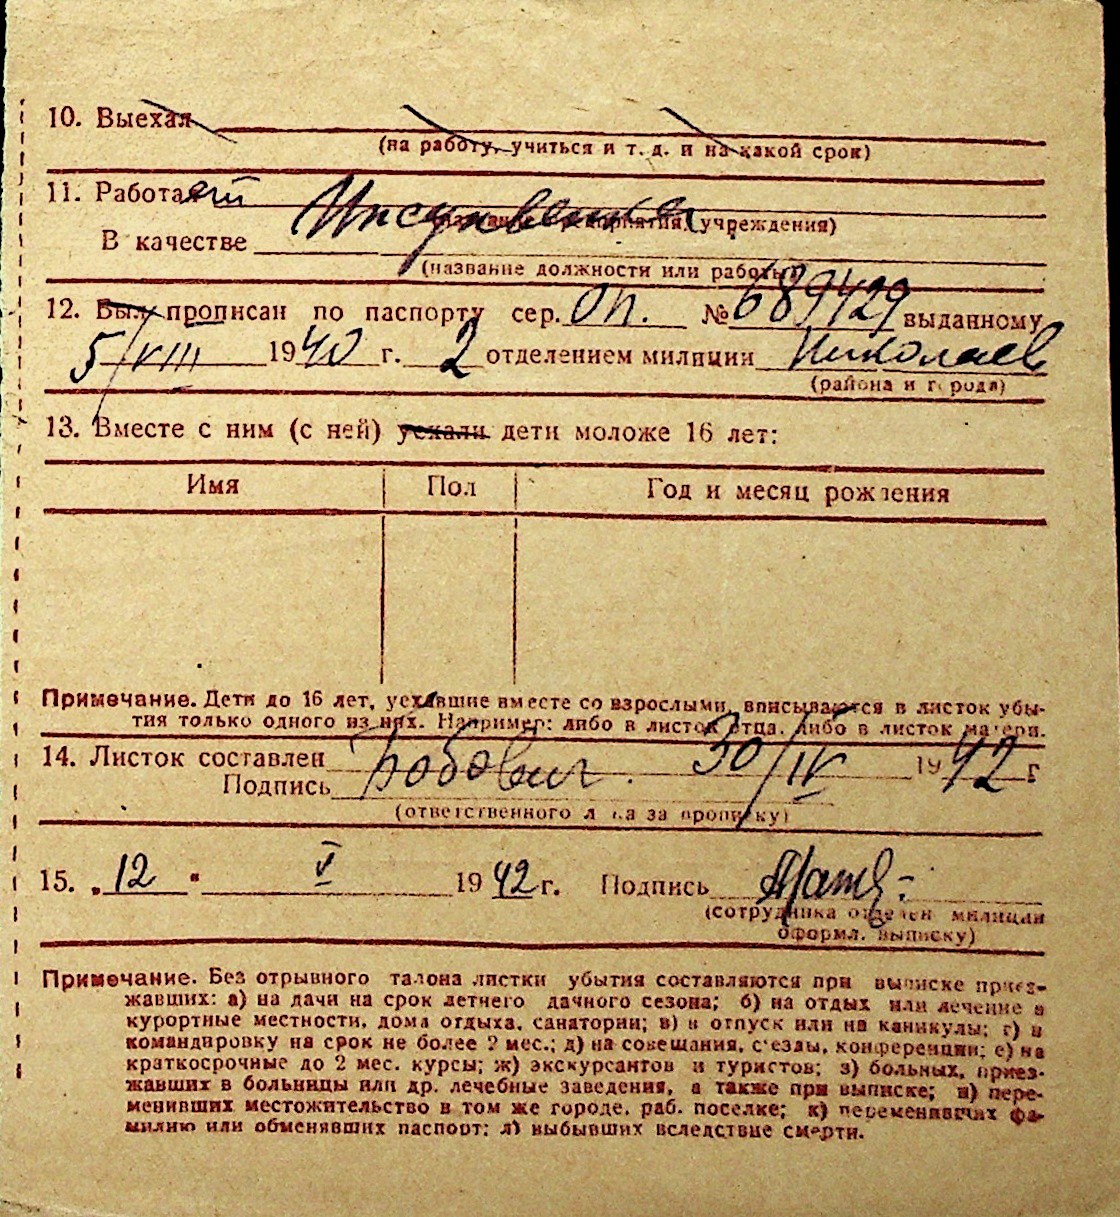 10. Выехал
(на работу, учиться и т. д. и на какой срок)
11. Работает
учреждения)
В качестве
(название должности или работы)
12. Был прописан по паспорту сер. ОП. № 689429 выданному
5/VIII 1940 г. 2 отделением милиции Николаев
(района и города)
13. Вместе с ним (с ней) уехали дети моложе 16 лет:
Имя Пол Год и месяц рождения
Примечание. Дети до 16 лет, уехавшие вместе со взрослыми, вписываются в листок убы-
тия только одного из них. Например: либо в листок отца, либо в листок матери.
14. Листок составлен 30/IV 1942 г
Подпись
(ответственного лица за прописку)
15. „12" V 1942 г. Подпись
(сотрудника отделен. милиции
оформл. выписку)
Примечание. Без отрывного талона листки убытия составляются при выписке приез-
жавших: а) на дачи на срок летнего дачного сезона; б) на отдых или лечение в
курортные местности, дома отдыха, санатории; в) в отпуск или на каникулы; г) в
командировку на срок не более 2 мес.; д) на совещания, с'езды, конференции; е) на
краткосрочные до 2 мес. курсы; ж) экскурсантов и туристов; з) больных, приез-
жавших в больницы или др. лечебные заведения, а также при выписке; и) пере-
менивших местожительство в том же городе, раб. поселке; к) переменивших фа-
милию или обменявших паспорт; л) выбывших вследствие смерти.